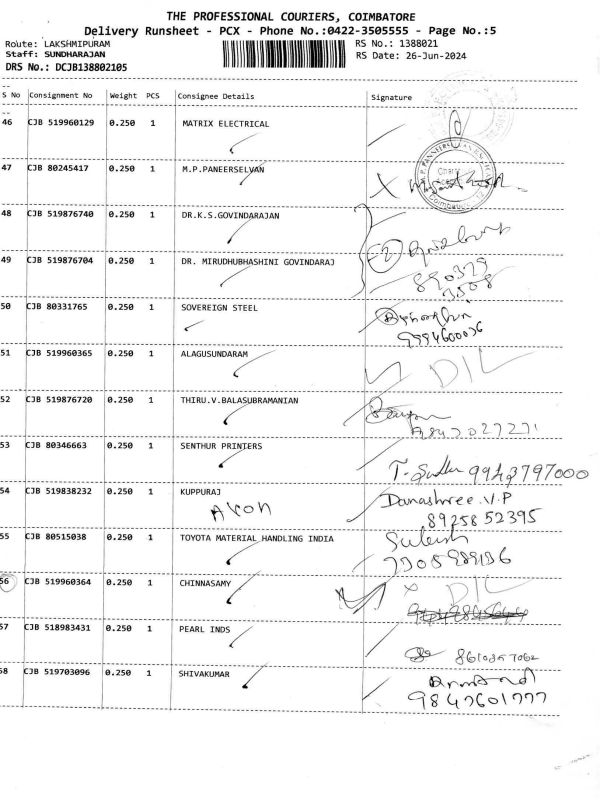 THE PROFESSIONAL COURIERS, COIMBATORE
Delivery Runsheet - PCX - Phone No.:0422-3505555 - Page No.:5
Route: LAKSHMIPURAM RS No.: 1388021
Staff: SUNDHARAJAN RS Date: 26-Jun-2024
DRS No.: DCJB138802105
S No Consignment No Weight PCS Consignee Details Signature
46 CJB 519960129 0.250 1 MATRIX ELECTRICAL
47 CJB 80245417 0.250 1 M.P.PANEERSELVAN
48 CJB 519876740 0.250 1 DR.K.S.GOVINDARAJAN
49 CJB 519876704 0.250 1 DR. MIRUDHUBHASHINI GOVINDARAJ
50 CJB 80331765 0.250 1 SOVEREIGN STEEL
9994600036
51 CJB 519960365 0.250 1 ALAGUSUNDARAM
D/L
52 CJB 519876720 0.250 1 THIRU.V.BALASUBRAMANIAN
53 CJB 80346663 0.250 1 SENTHUR PRINTERS
9943797000
54 CJB 519838232 0.250 1 KUPPURAJ
Avon
Danashree.V.P
89258 52395
55 CJB 80515038 0.250 1 TOYOTA MATERIAL HANDLING INDIA
56 CJB 519960364 0.250 1 CHINNASAMY
D/L
57 CJB 518983431 0.250 1 PEARL INDS
58 CJB 519703096 0.250 1 SHIVAKUMAR